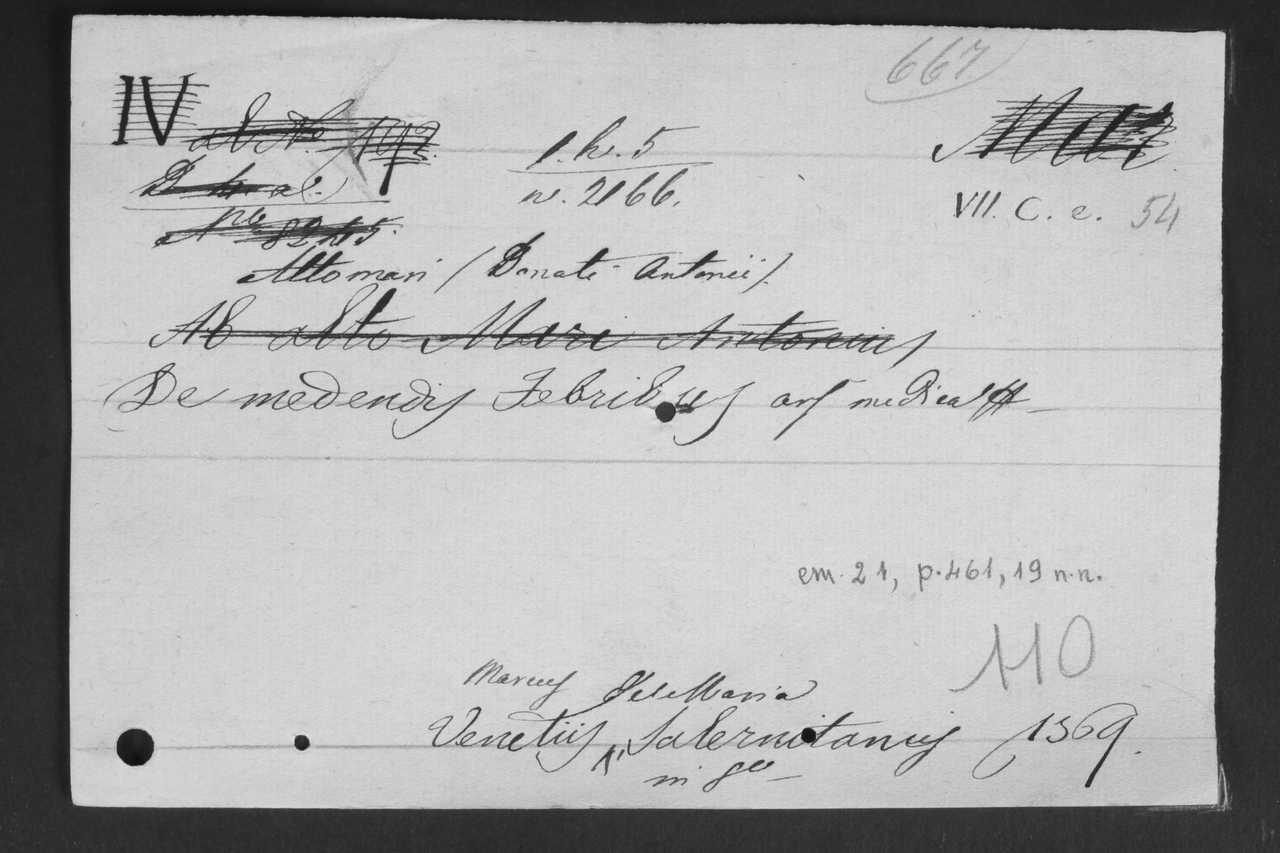 667
IV
l. h. 5
n. 2166.
VII. C. e. 54
Altomari (Donati Antonii).
Ab alto Mari Antonius
De medendis Febribus ars medica
em. 21, p. 461, 19 n.n.
110
Marcus de Maria
Venetiis Salernitanus 1569.
in 8vo